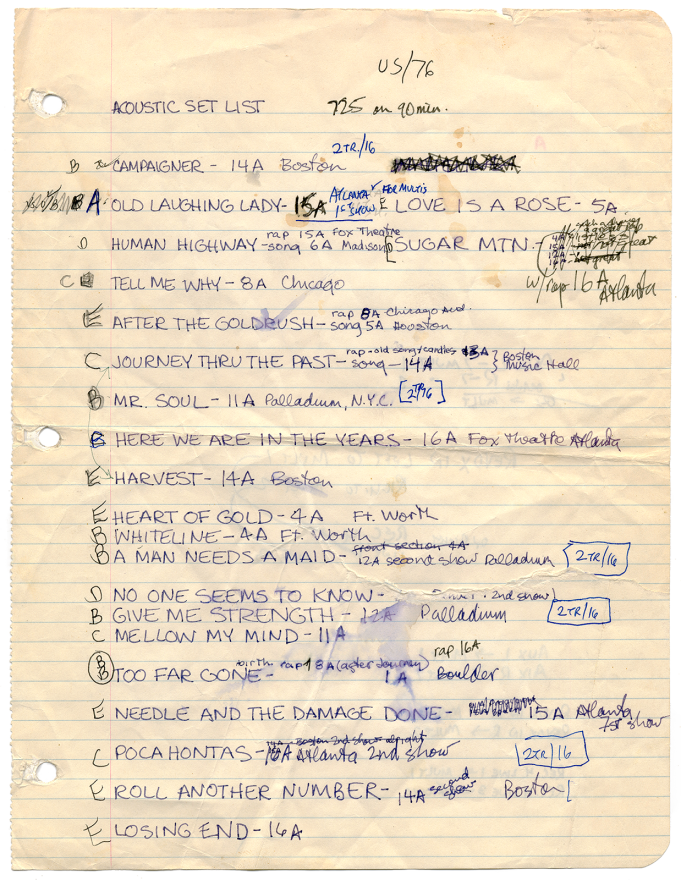 US/76
ACOUSTIC SET LIST 725 on 90 min.
2TR./16
B CAMPAIGNER - 14A Boston
A OLD LAUGHING LADY - 15A ATLANTA 1ST SHOW FOR MULTIS E LOVE IS A ROSE - 5A
D HUMAN HIGHWAY - rap 15A Fox Theatre song 6A Madison D SUGAR MTN. -
w/rap 16A Atlanta
C TELL ME WHY - 8A Chicago
E AFTER THE GOLDRUSH - rap 8A Chicago Aud. song 5A Houston
C JOURNEY THRU THE PAST - rap - old song/candles 13A song - 14A } Boston Music Hall
B MR. SOUL - 11A Palladium, N.Y.C. [2TR/16]
B HERE WE ARE IN THE YEARS - 16A Fox Theatre Atlanta
E HARVEST - 14A Boston
E HEART OF GOLD - 4A Ft. Worth
B WHITELINE - 4A Ft. Worth
B A MAN NEEDS A MAID - front section 4A 12A second show Palladium 2TR/16
D NO ONE SEEMS TO KNOW - 2nd show)
B GIVE ME STRENGTH - 12A Palladium 2TR/16
C MELLOW MY MIND - 11A
B TOO FAR GONE - birth rap 8A (after Journey) 1A rap 16A Boulder
E NEEDLE AND THE DAMAGE DONE - 15A Atlanta 1st show
C POCAHONTAS - 14A - Boston 2nd show alright 15A Atlanta 2nd show 2TR/16
E ROLL ANOTHER NUMBER - 14A second show Boston
E LOSING END - 16A